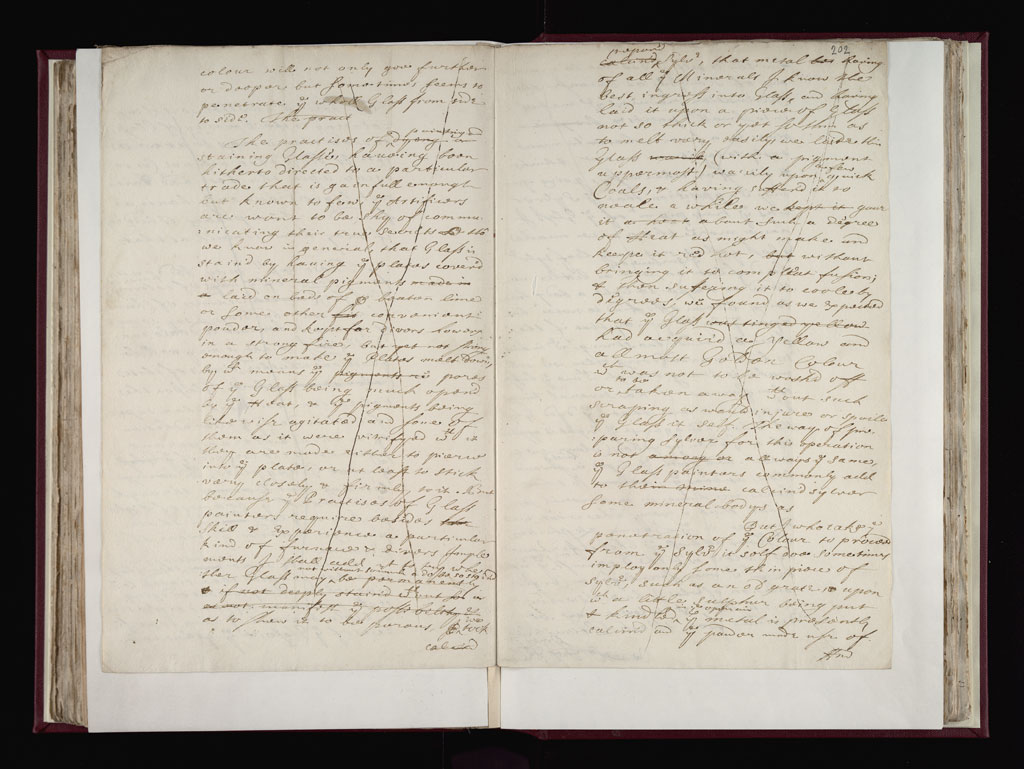 colour will not only goe further
or deeper but sometimes seems to
penetrate yͤ whole Glass from side
to side. The pract
painting and
The practises of
staining Glasse, haveing been
hitherto directed to a particular
trade that is gainfull enough
but known to few, yͤ Artificers
are wont to be shy of commu-
nicating their true secrets
we know in generall that Glass is
stain'd by having yͤ plates cover'd
with mineral pigments made in
laid on beds of beaten lime
or some other convenient
pouder, and kept for divers howers
in a strong fire, but yet not strong
enough to make yͤ plates melt down,
by wͨͪ means yͤ pigments parts
of yͤ Glass being much opend
by yͤ Heat, & yͤ pigments being
likewise agitated and some of
them as it were vitrifyed wͭͪ it
they are made either to pierce
into yͤ plate, or at least to stick
very closely & firmly to it. And
because yͤ Practises of Glass
painters require besides
skill & experience a particular
kind of furnace & divers
ments I shall add
ther Glass may be permanently
if not deeply stain'd
as not manifest yͤ possibility
as to shew it to be porous we took
calcind
202
prepard
calcind sylvͬ, that metal having
of all yͤ Minerals I know the
best ingress into Glass, and having
laid it upon a piece of Glass
not so thick or yet so thin as
to melt very easily, we
Glass (with a pigment
uppermost) warily upon a few quick
Coals, & having sufferd it to
neale a while we kept it gave
it a heat about such a degree
of Heat as might make and
keepe it red hot, but without
bringing it to compleat fusion;
& then suffering it to coole by
degrees, we found as we expected
that yͤ Glass was tinged yellow
had acquird a Yellow and
allmost Golden Colour
wͨͪ was not to be washd off
or to be taken away wͭͪout such
scraping as would injure or spoile
yͤ Glass it self. The way of pre-
paring sylver for this operation
is not allways yͤ same,
yͤ Glass painters commonly add
to their calcind sylver
some mineral bodys as
But who takes yͤ
penetration of yͤ Colour to proceed
from yͤ sylvͬ it self doe sometimes
imploy only some thin pieces of
sylvͬ, such as an old grate upon
wͨͪ a little sulphur being put
& kindled yͤ metal is presently
calcind and yͤ pouder made use of
And